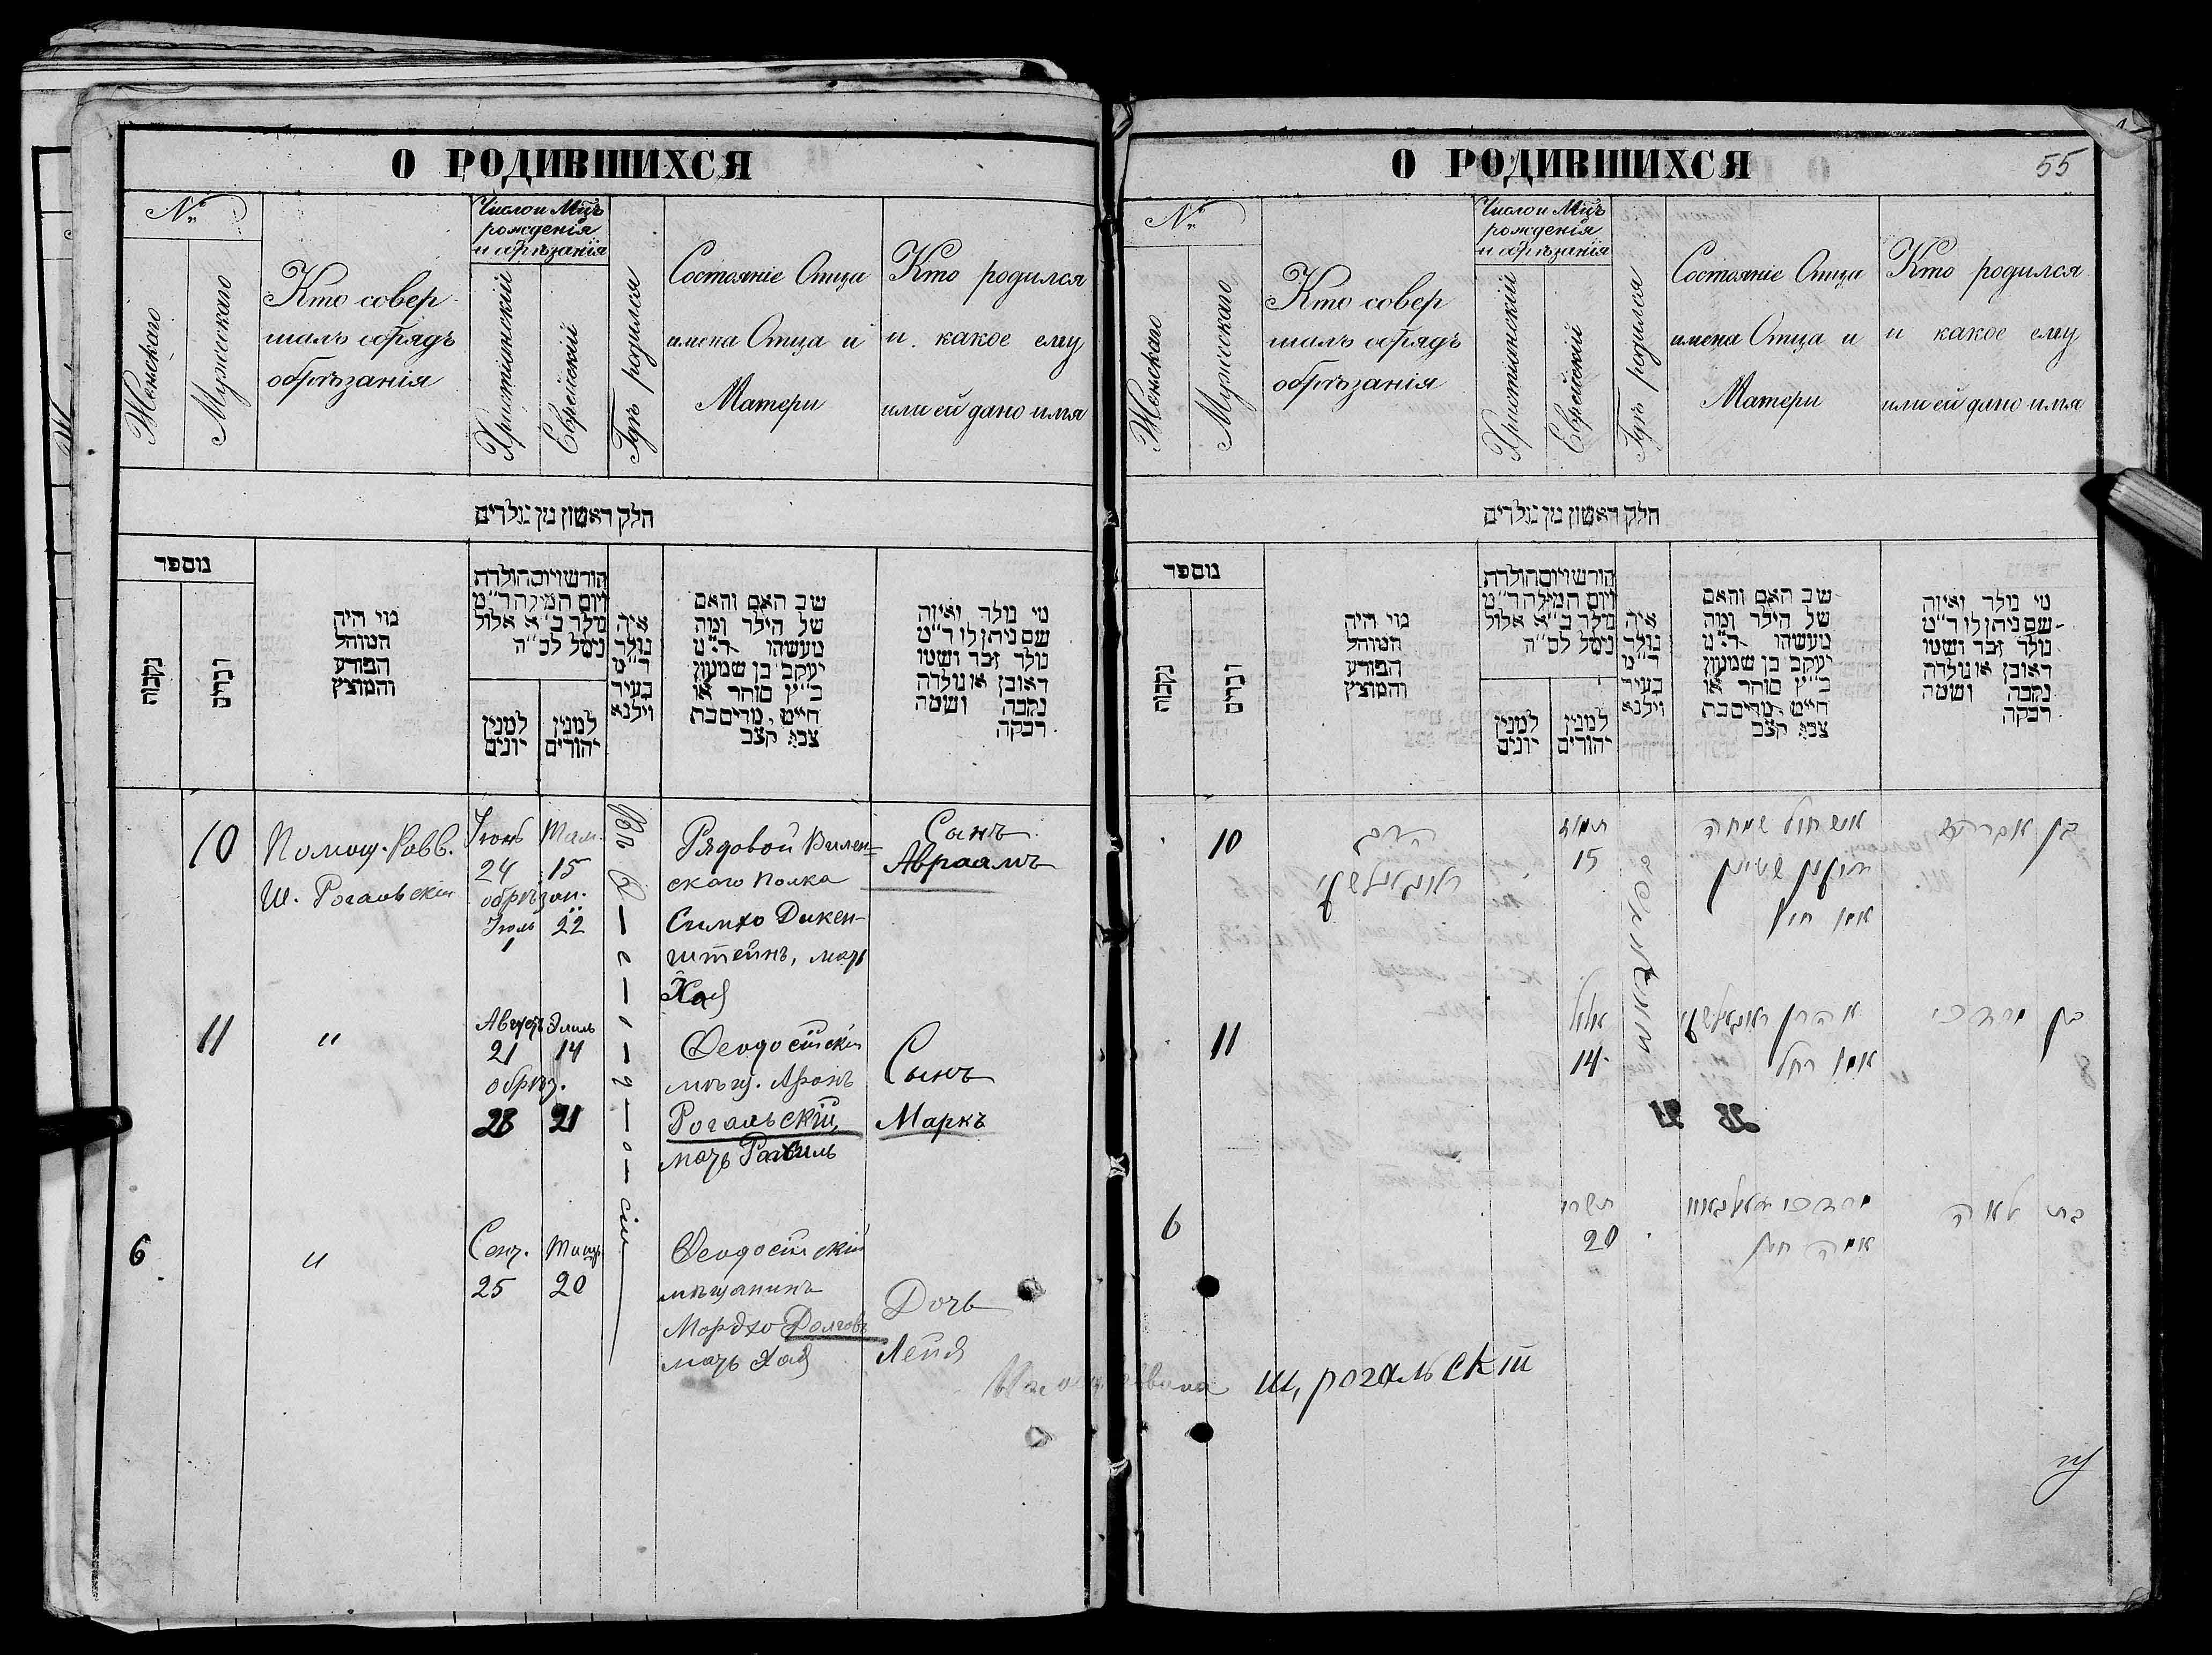 О РОДИВШИХСЯ
№
Женскаго
Мужескаго
Кто совер
шалъ обрядъ
обрѣзанія
Число и Мцъ
рожденія
и обрѣзанія
Христіанскій
Еврейскій
Гдѣ родился
Состояніе Отца
имена Отца и
Матери
Кто родился
и какое ему
или ей дано имя
חלק ראשון מן נולדים
מספר
נקבות
זכרים
מי היה
המוהל
הפורע
והמוצץ
חודש ויום הולדת
ויום המילה ד"מ
נולד ב"א אלול
נימל לכ"ה
למנין
יונים
למנין
יהודים
איה
נולד
ד"מ
בעיר
וילנא
שב האם והאם
של הילד ומה
מעשהו ד"מ
יעקב בן שמעון
כ"ץ סוחר או
חייט, מרים בת
צבי קצב
מי נולד ואיזה
שם ניתן לו ד"מ
נולד זכר ושמו
ראובן או נולדה
נקבה ושמה
רבקה
10
Помощ. Равв.
Ш. Рогальскій
Іюнь Там.
24 15
обрѣзан.
Іюль 22
1
Въ Ѳ-е-о-д-о-сіи
Рядовой Вилен-
скаго Полка
Симхо Дикен-
штейнъ, мать
Хая
Сынъ
Авраамъ
11
"
Августъ Элиль
21 14
обрѣз.
28 21
Ѳеодосійскій
мѣщ. Аронъ
Рогальскій,
мать Рахиль
Сынъ
Маркъ
6
"
Сент. Тишр.
25 20
Ѳеодосійскій
мѣщанинъ
Мордхо Долговъ
мать Хая
Дочь
Лейя
О РОДИВШИХСЯ
55
№
Женскаго
Мужескаго
Кто совер
шалъ обрядъ
обрѣзанія
Число и Мцъ
рожденія
и обрѣзанія
Христіанскій
Еврейскій
Гдѣ родился
Состояніе Отца
имена Отца и
Матери
Кто родился
и какое ему
или ей дано имя
חלק ראשון מן נולדים
מספר
נקבות
זכרים
מי היה
המוהל
הפורע
והמוצץ
חודש ויום הולדת
ויום המילה ד"מ
נולד ב"א אלול
נימל לכ"ה
למנין
יונים
למנין
יהודים
איה
נולד
ד"מ
בעיר
וילנא
שב האם והאם
של הילד ומה
מעשהו ד"מ
יעקב בן שמעון
כ"ץ סוחר או
חייט, מרים בת
צבי קצב
מי נולד ואיזה
שם ניתן לו ד"מ
נולד זכר ושמו
ראובן או נולדה
נקבה ושמה
רבקה
10
הרב
ראגאלסקי
תמוז
15
שמחה
אמו חיה
בן אברהם
11
אלול
14
אהרן ראגאלסקי
אמו רחל
בן מרדכי
6
תשרי
20
מרדכי
אמה חיה
בת לאה
Ш, рогальскій